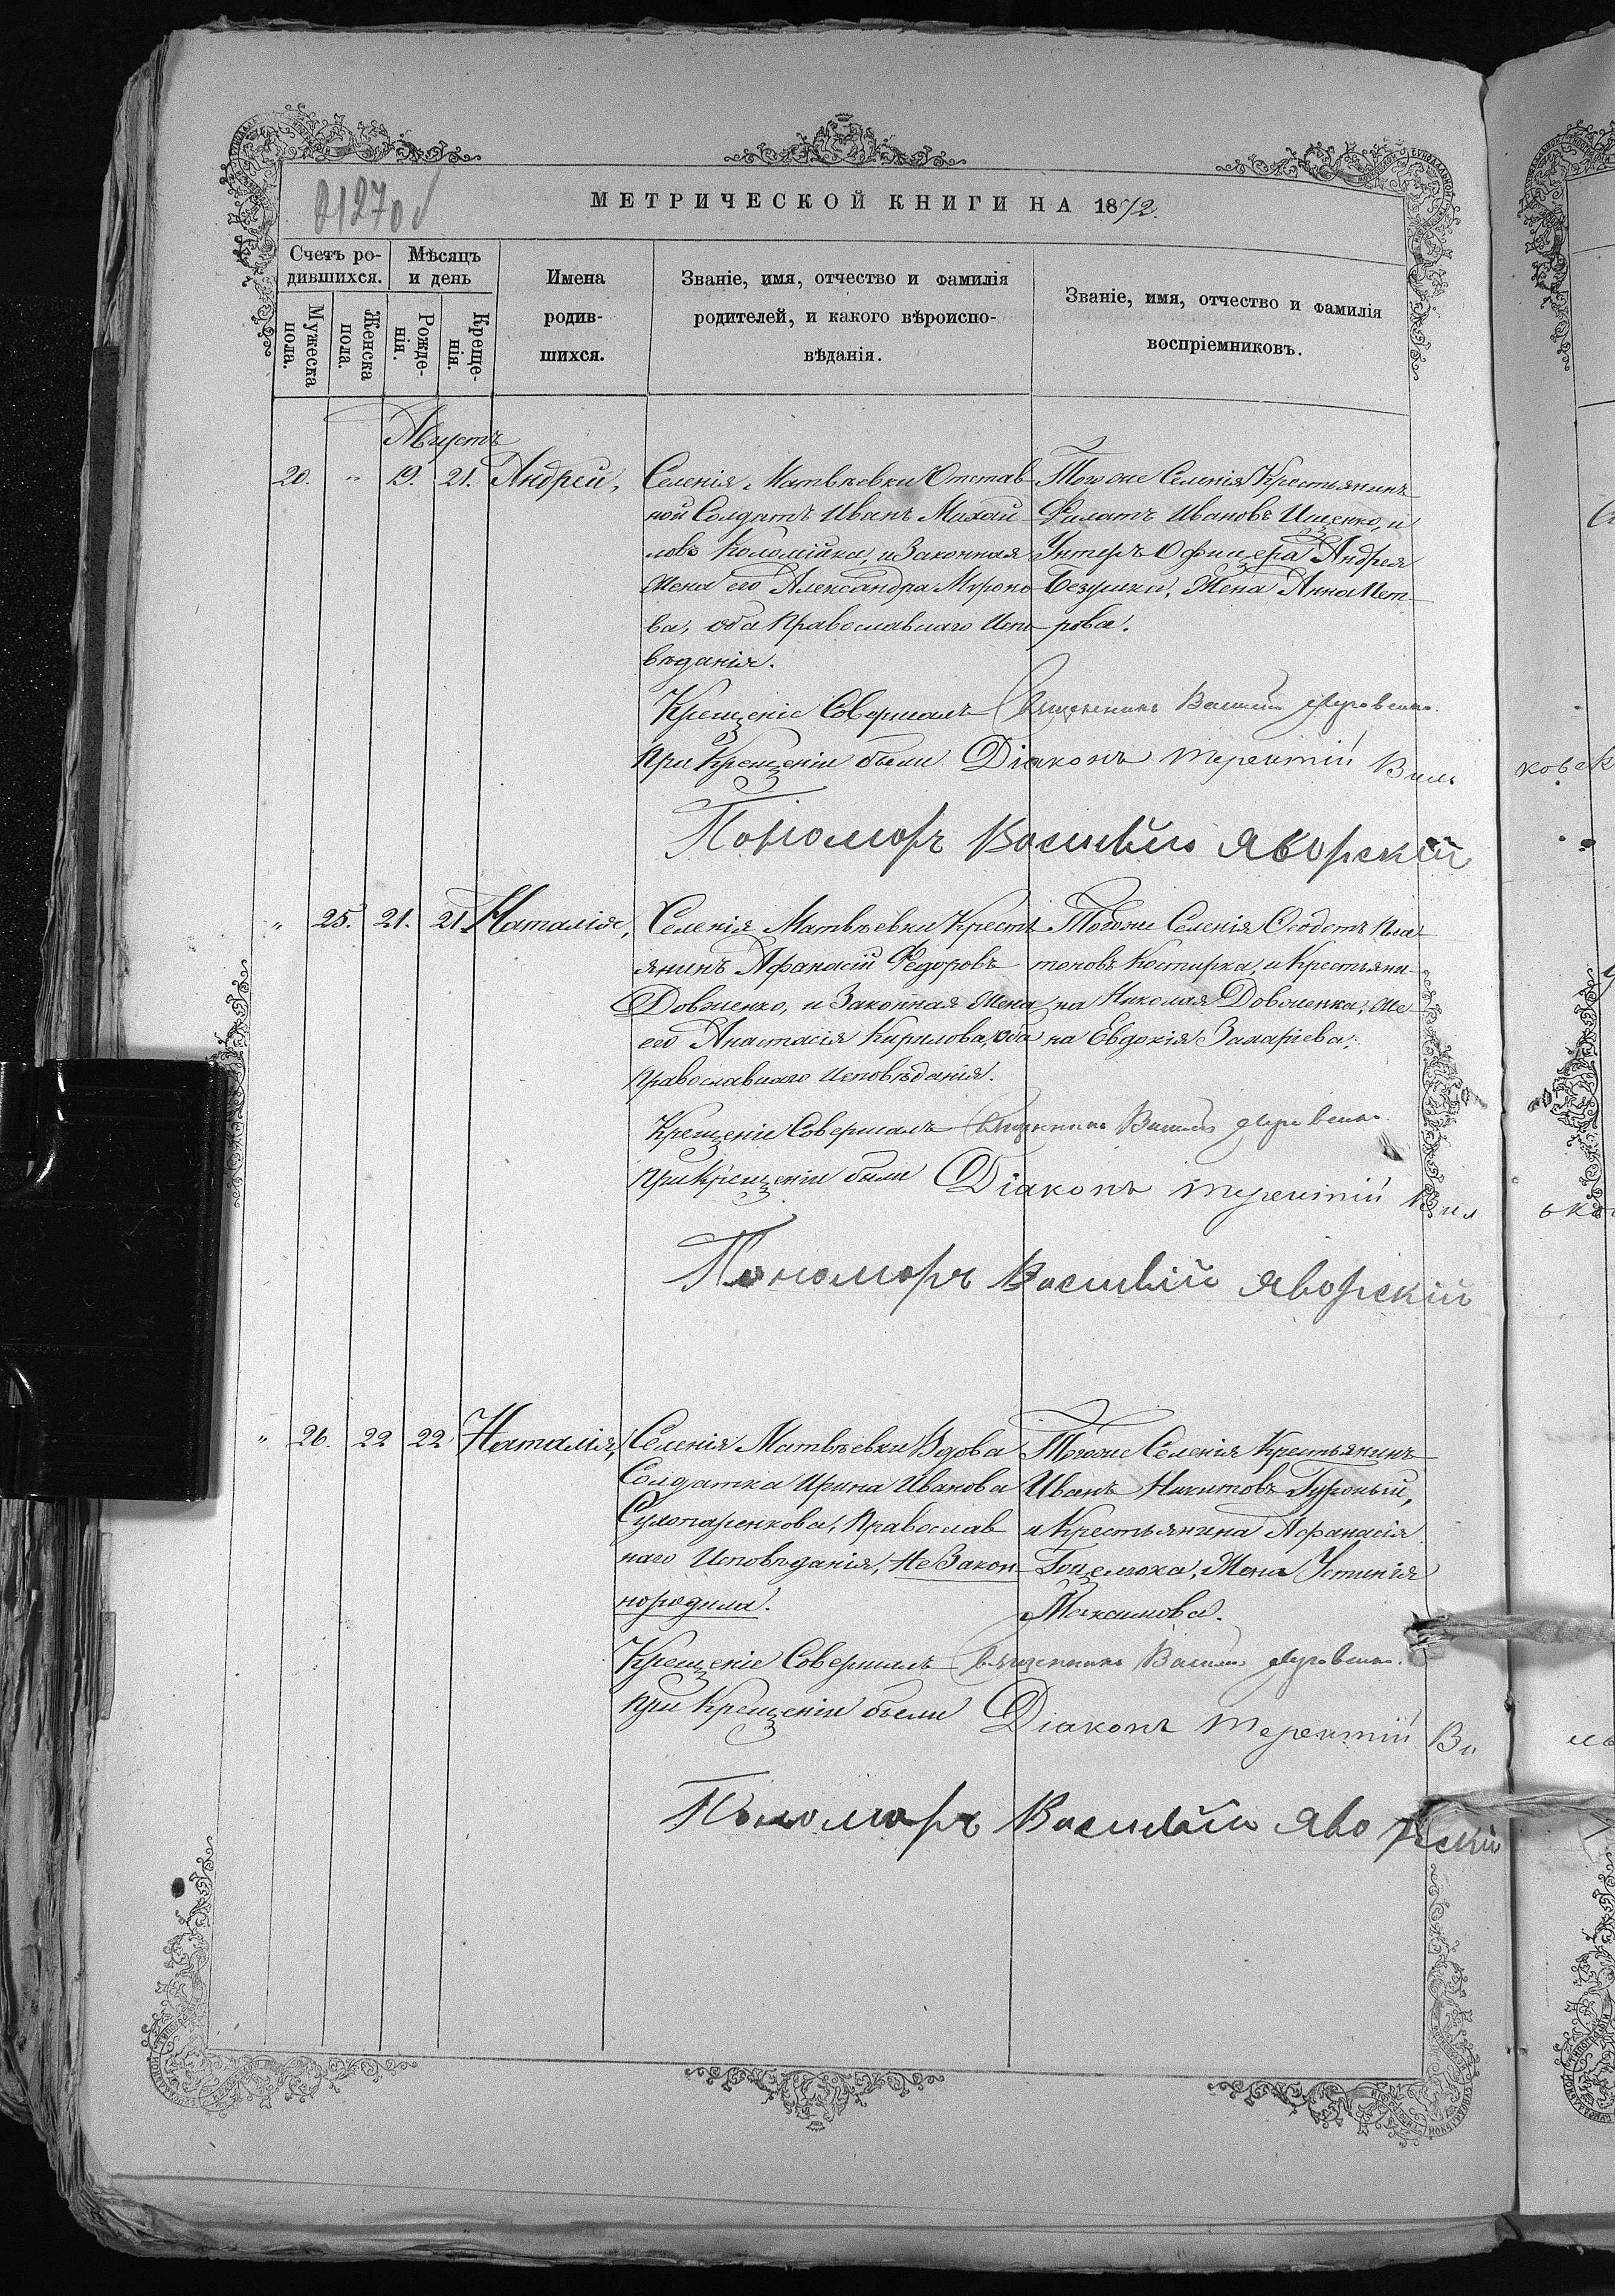 МЕТРИЧЕСКОЙ КНИГИ НА 1872.
Счетъ ро-
дившихся.
Мѣсяцъ
и день
Мужеска
пола.
Женска
пола.
Рожде-
нія.
Креще-
нія.
Имена
родив-
шихся.
Званіе, имя, отчество и фамилія
родителей, и какого вѣроиспо-
вѣданія.
Званіе, имя, отчество и фамилія
воспріемниковъ.
Августъ
20. " 19. 21. Андрей,
Селенія Матвѣевки Отстав
ной Солдатъ Иванъ Михай
ловъ Коломійка, и Законная
жена его Александра Миро
ва, оба Православнаго Испо
вѣданія.
Тогоже Селенія Крестьянинъ
Филатъ Ивановъ Ищенко, и
Унтеръ Офицера Андрея
Жена Анна Пет-
рова.
Крещеніе Совершалъ Священникъ Василій
При Крещеніи были Діаконъ Терентій Виль
Пономарь Василій Яворскій
" 25. 21. 21. Наталія,
Селенія Матвѣевки Кресть
янинъ Афанасій Федоровъ
Довженко, и Законная жена
его Анастасія Кирилова, оба
Православнаго Исповѣданія.
Тогоже Селенія Пла-
тоновъ Костирка, и Крестьяни-
на Николая Довженка, же-
на Евдокія Захаріева.
Крещеніе Совершалъ Священникъ Василій
При Крещеніи были Діаконъ Терентій Вил
Пономарь Василій Яворскій
" 26. 22 22 Наталія,
Селенія Матвѣевки Вдова
Солдатка Ирина Иванова
Православ
наго Исповѣданія, Не Закон
нородила.
Тогоже Селенія Крестьянинъ
Иванъ Никитовъ
и Крестьянина Афанасія
Жена Устинія
Максимова.
Крещеніе Совершалъ Священникъ Василій
При Крещеніи были Діаконъ Терентій Ви
Пономарь Василій Яворскій